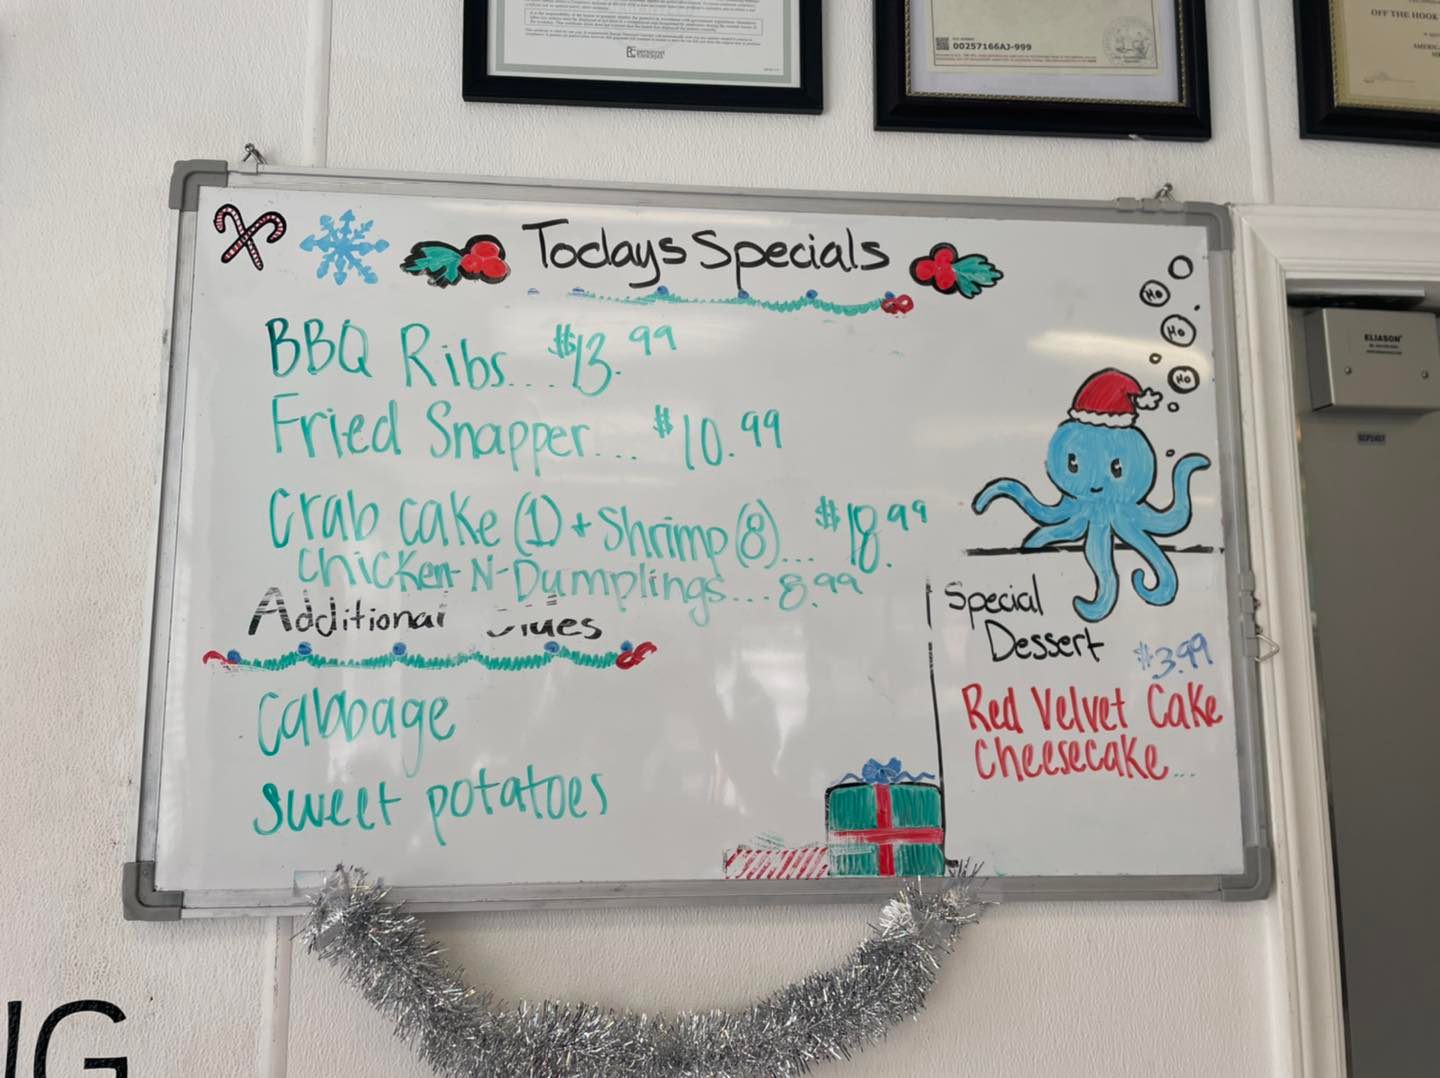 personnel concepts
00257166AJ-999
OFF THE HOOK
Todays Specials
BBQ Ribs... $13.99
Fried Snapper... $10.99
Crab cake (1) + Shrimp (8)... $18.99
Chicken-N-Dumplings... 8.99
Additional Sides
Cabbage
Sweet potatoes
Ho
Ho
Ho
Special
Dessert
$3.99
Red Velvet Cake
Cheesecake...
ELIASON
UG